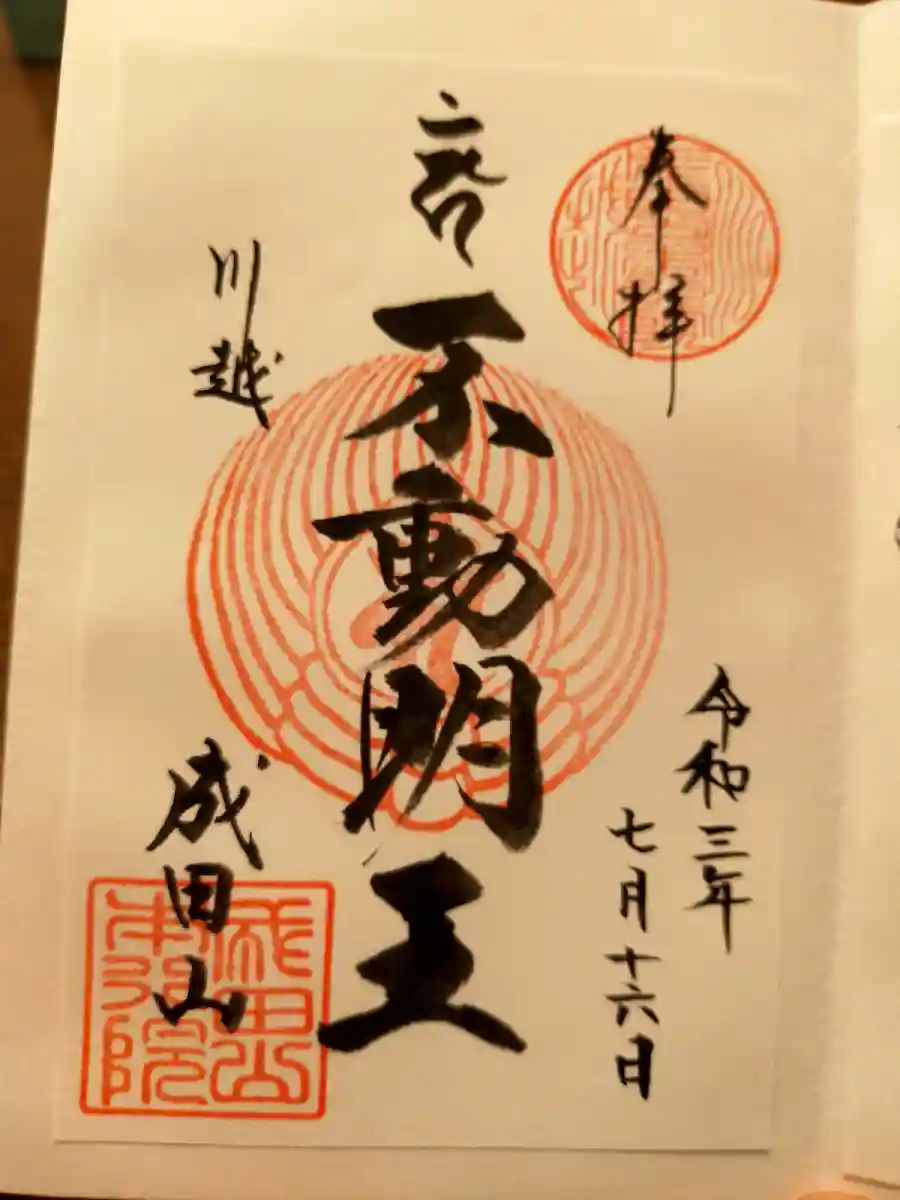 奉拝
令和三年
七月十六日
不動明王
川越
成田山
成田山
本行院